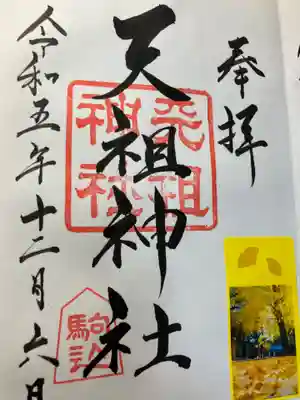 奉拝
天祖神社
天祖
神社
駒込
令和五年十二月六日